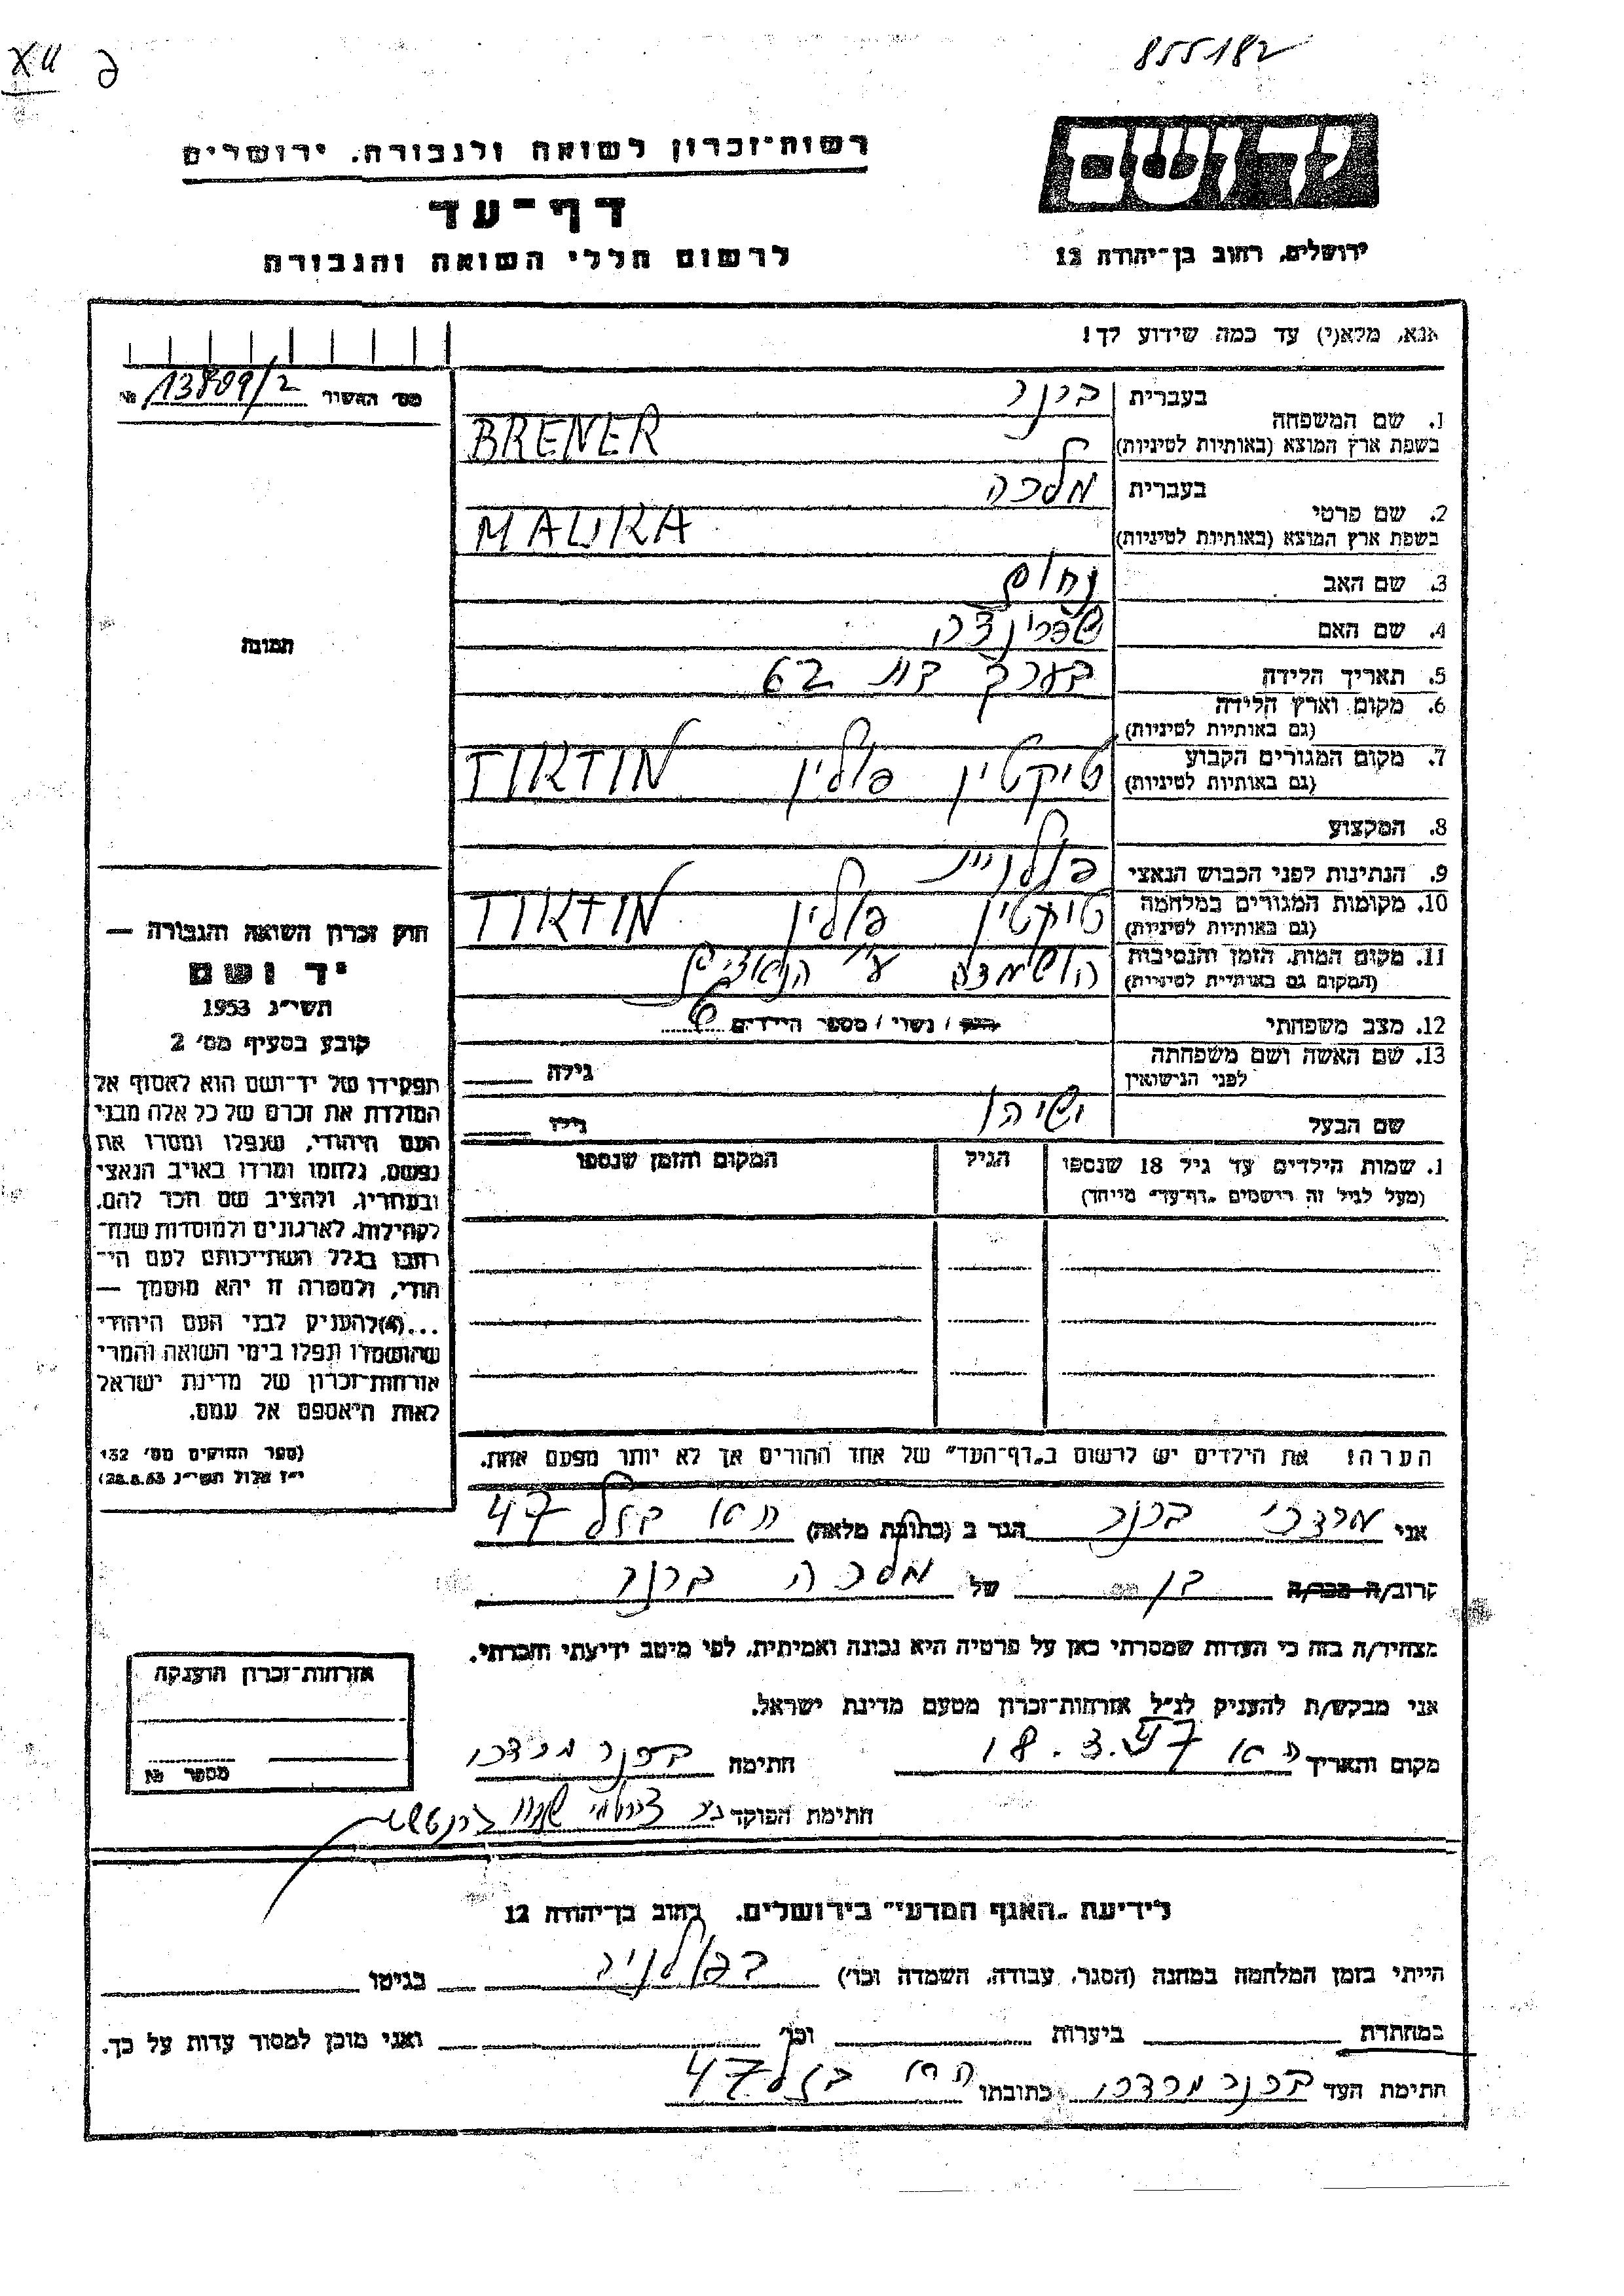 855182
רשות־זכרון לשואה ולגבורה. ירושלים
יד ושם
דף־עד
לרשום חללי השואה והגבורה
ירושלים, רחוב בן־יהודה 12
אנא, מלא(י) עד כמה שידוע לך!
מס׳ האשור 13809/2 №
תמונה
1. שם המשפחה
בעברית ברנר
בשפת ארץ המוצא (באותיות לטיניות) BRENER
2. שם פרטי
בעברית מלכה
בשפת ארץ המוצא (באותיות לטיניות) MALKA
3. שם האב נחום
4. שם האם שפרינצה
5. תאריך הלידה בערך בת 62
6. מקום וארץ הלידה
(גם באותיות לטיניות)
7. מקום המגורים הקבוע טיקטין פולין TIKTIN
(גם באותיות לטיניות)
8. המקצוע
9. הנתינות לפני הכבוש הנאצי פולנית
10. מקומות המגורים במלחמה טיקטין פולין TIKTIN
(גם באותיות לטיניות)
11. מקום המות, הזמן והנסיבות הושמדה ע״י הנאצים
(המקום גם באותיות לטיניות)
12. מצב משפחתי רווק / נשוי / מספר הילדים 6
13. שם האשה ושם משפחתה
לפני הנישואין גילה
שם הבעל ישיהו גילו
1. שמות הילדים עד גיל 18 שנספו הגיל המקום והזמן שנספו
(מעל לגיל זה רישמים „דף־עד״ מייחד)
הערה! את הילדים יש לרשום ב„דף־העד״ של אחד ההורים אך לא יותר מפעם אחת.
חוק זכרון השואה והגבורה —
יד ושם
תשי״ג 1953
קובע בסעיף מס׳ 2
תפקידו של יד־ושם הוא לאסוף אל
המולדת את זכרם של כל אלה מבני
העם היהודי, שנפלו ומסרו את
נפשם, נלחמו ומרדו באויב הנאצי
ובעוזריו, ולהציב שם וזכר להם,
לקהילות, לארגונים ולמוסדות שנח־
רבו בגלל השתייכותם לעם הי־
הודי, ולמטרה זו יהא מוסמך —
...(4)להעניק לבני העם היהודי
שהושמדו ונפלו בימי השואה והמרי
אזרחות־זכרון של מדינת ישראל
לאות היאספם אל עמם.
(ספר החוקים מס׳ 132
י״ז אלול תשי״ג 28.8.53)
אני מרדכי ברנר הגר ב (כתובת מלאה) ת״א בזל 47
קרוב/ה מכר/ה בן של מלכה ברנר
מצהיר/ה בזה כי העדות שמסרתי כאן על פרטיה היא נכונה ואמיתית, לפי מיטב ידיעתי והכרתי.
אני מבקש/ת להעניק לנ״ל אזרחות־זכרון מטעם מדינת ישראל.
מקום ותאריך ת״א 18.3.57 חתימה ברנר מרדכי
חתימת הפוקד
אזרחות־זכרון הוענקה
מספר №
לידיעת „האגף המדעי״ בירושלים, רחוב בן־יהודה 12
הייתי בזמן המלחמה במחנה (הסגר, עבודה, השמדה וכו׳) בגיטו
במחתרת ביערות וכו׳ ואני מוכן למסור עדות על כך.
חתימת העד ברנר מרדכי כתובתו ת״א בזל 47